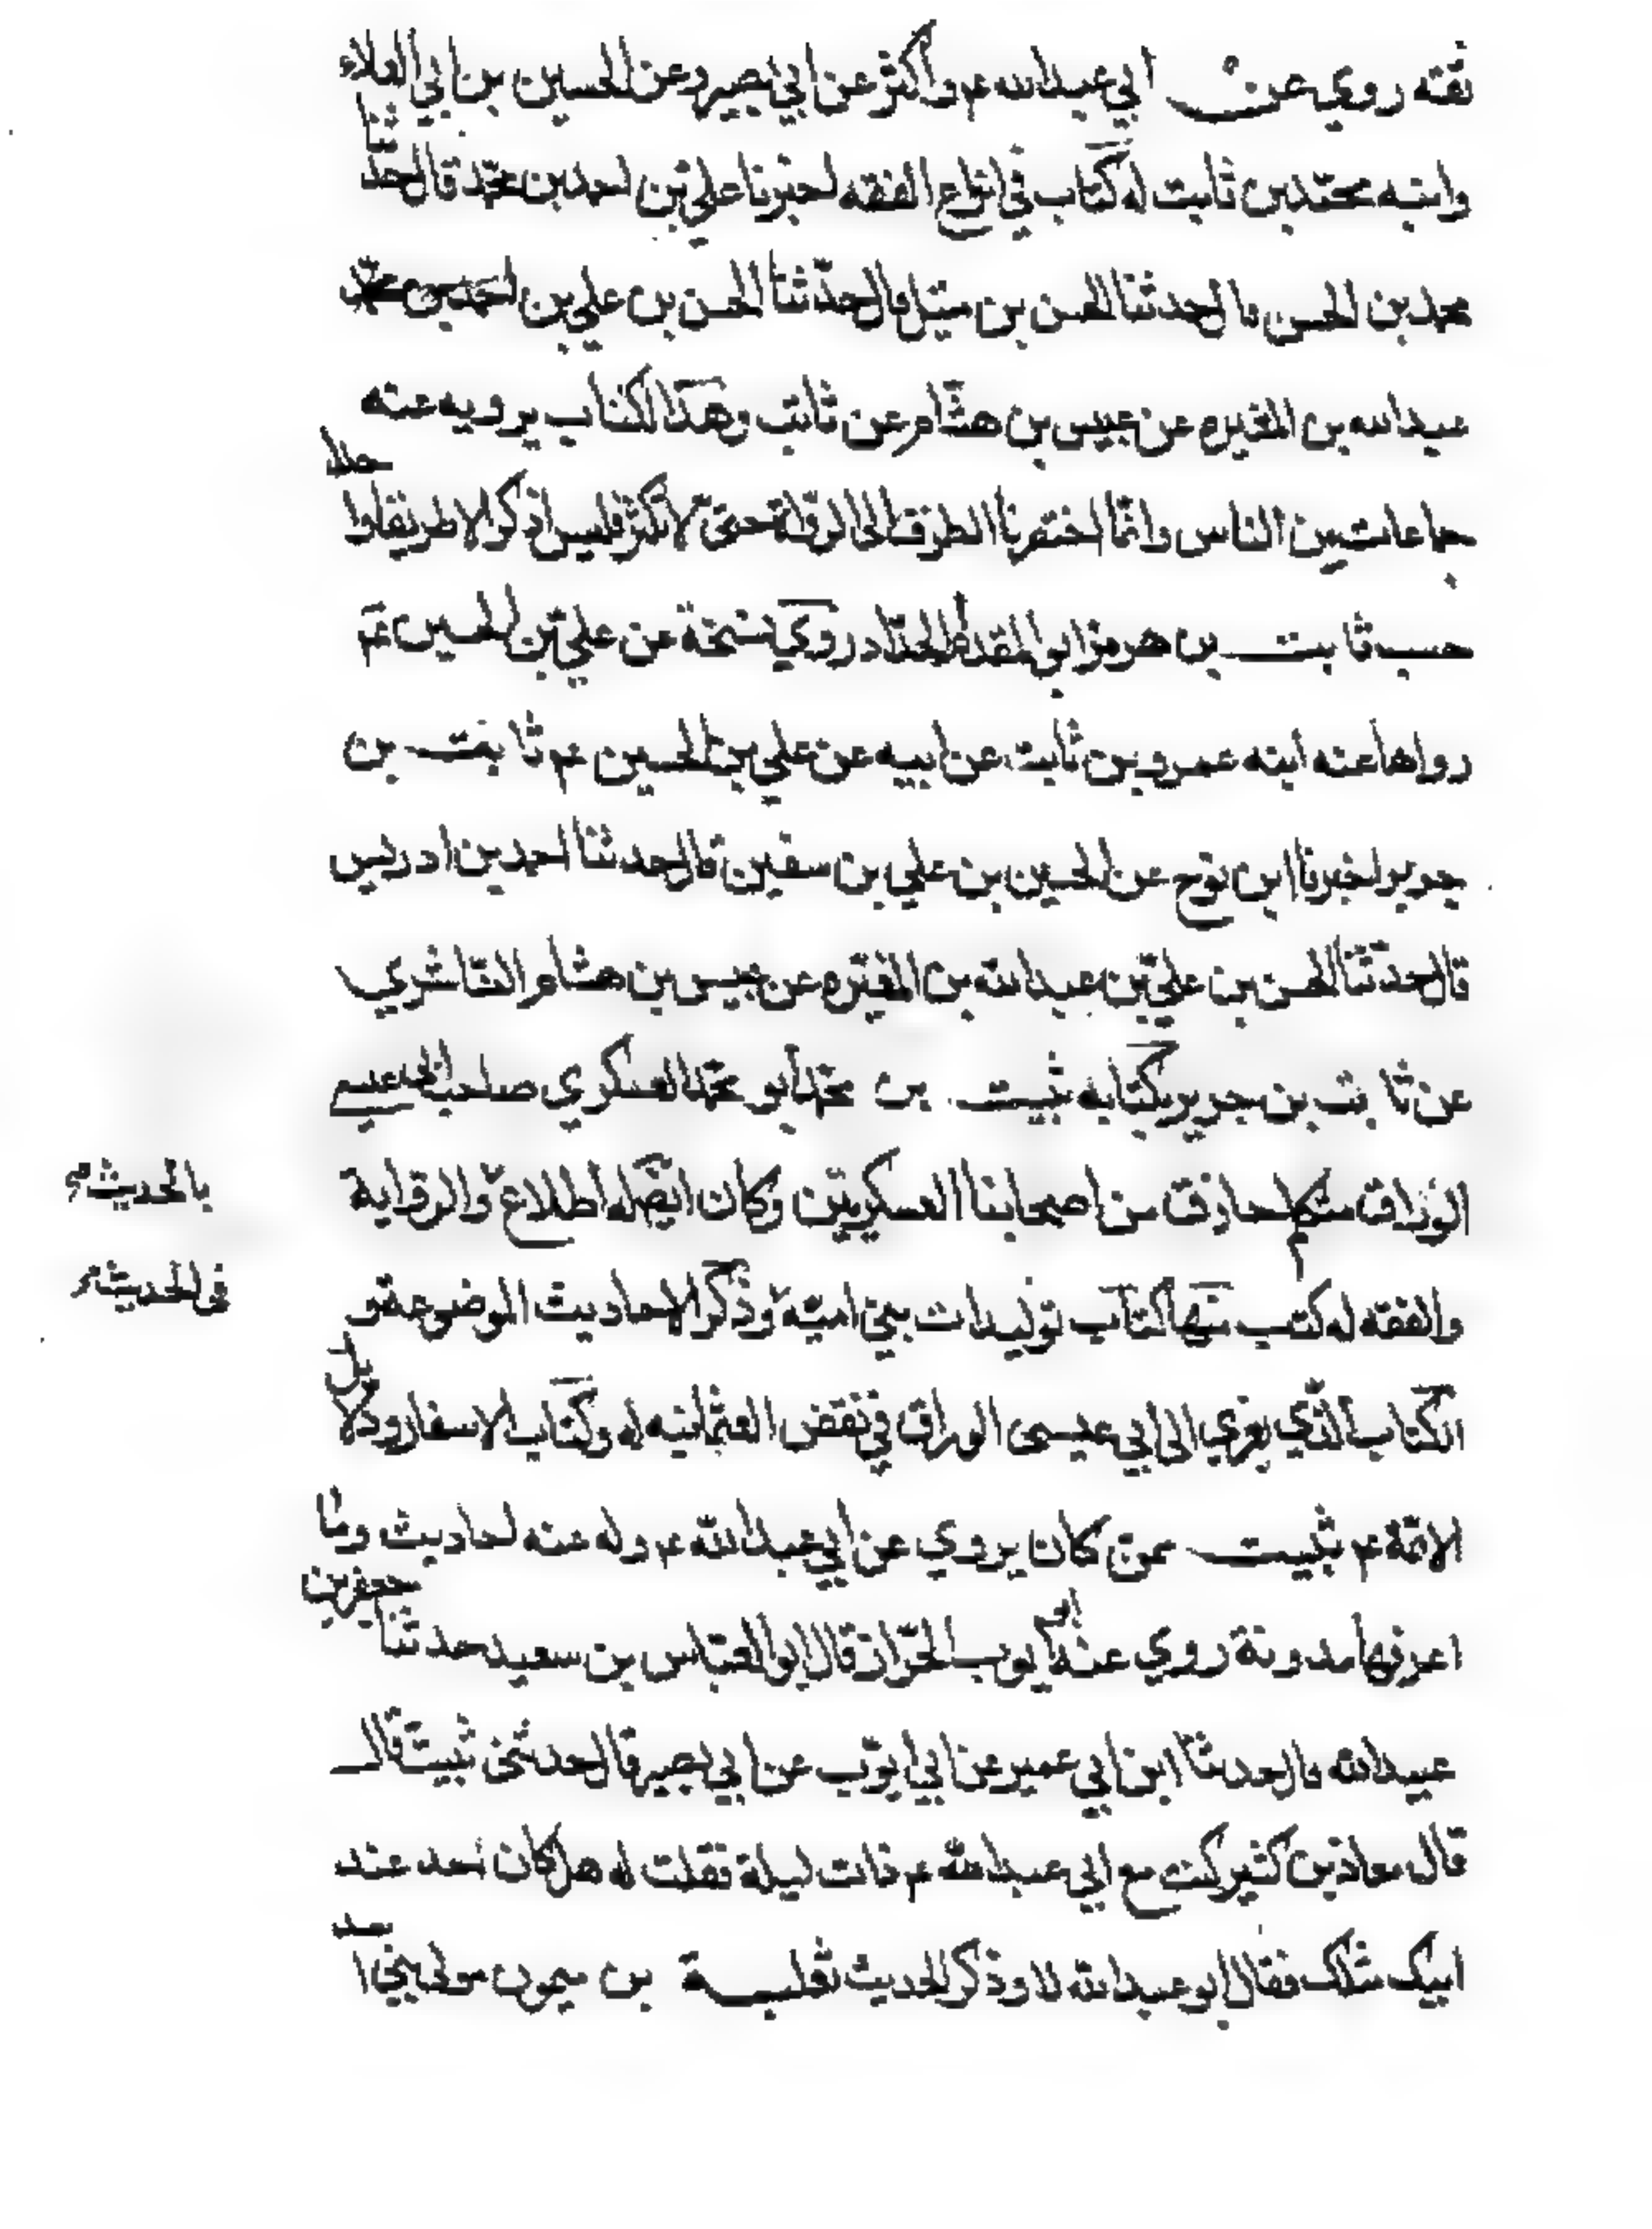 ثقة روي عن ابي عبدالله ع م واكثر عن ابي بصير وعن الحسين بن ابي العلاء
وابنه محمّد بن ثابت له كتاب في انواع الفقه اخبرنا علي بن احمد بن محمّد قال حدّثنا
محمد بن الحسن قال حدثنا الحسن بن متيل قال حدّثنا الحسن بن علي بن احمد بن محمّد
عبدالله بن المغيره عن عبيس بن هشام عن ثابت وهذا الكتاب يرويه عنه
جماعات من الناس وانّما اختصرنا الطرق الى الرواة حتى لا تكثر فليس اذكر الا طريقا واحدا
حسب ثابت بن هرمز ابو المقدام الحدّاد روي نسخة عن علي بن الحسين ع م
رواها عنه ابنه عمرو بن ثابت عن ابيه عن علي بن الحسين ع م ثابت بن
جرير اخبرنا ابن نوح عن الحسين بن علي بن سفين قال حدثنا احمد بن ادريس
قال حدّثنا الحسن بن علي بن عبدالله بن المغيره عن عبيس بن هشام الناشري
عن ثابت بن جرير بكتابه ثبيت بن محمّد ابو محمّد العسكري صاحب ابي عيسى
الورّاق متكلم حاذق من اصحابنا العسكريين وكان ايضا له اطلاع والرواية
بالحديث
والفقه له كتب منها كتاب توليدات بني اميّة وذكر الاحاديث الموضوعة و
في الحديث
الكتاب الّذي يعزي الى ابي عيسى الوراق في نقض العثمانيه له وكتاب الاسفار ودلائل
الائمّة ع م ثبيت ممن كان يروي عن ابي عبدالله ع م وله عنه احاديث وما
اعرفها مدونة روي عنه ابو ايوب الخزاز قال ابو العبّاس بن سعيد حدثنا جعفر بن
عبيدالله قال حدثنا ابن ابي عمير عن ابي ايوب عن ابي بصير قال حدثني ثبيت قال
قال معاذ بن كثير كنت مع ابي عبدالله ع م ذات ليلة فقلت له هل كان احد عند
ابيك مثلك فقال ابو عبدالله لا وذكر الحديث ثعلبة بن ميمون مولى بني اسد